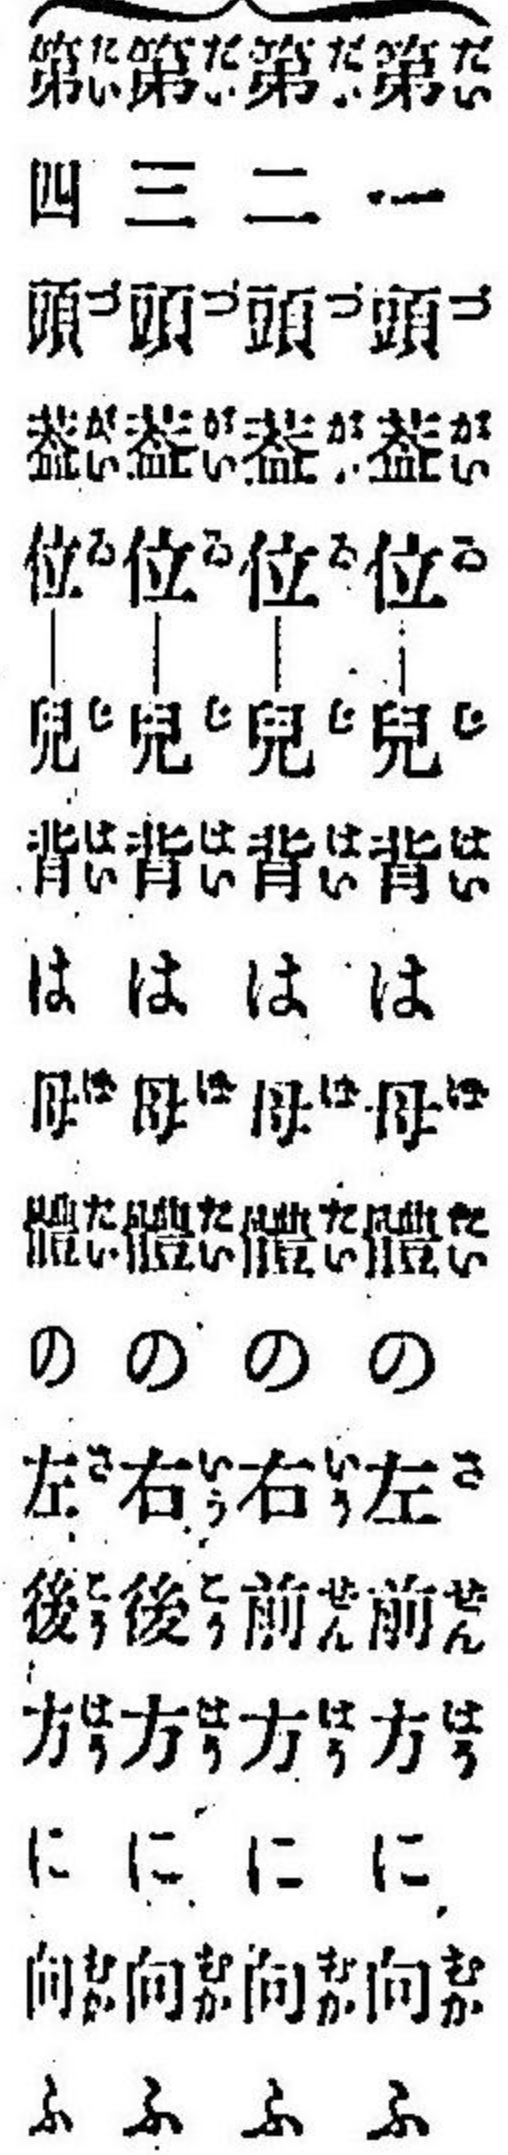 第一頭蓋位─兒背は母體の左前方に向ふ
第二頭蓋位─兒背は母體の右前方に向ふ
第三頭蓋位─兒背は母體の右後方に向ふ
第四頭蓋位─兒背は母體の左後方に向ふ